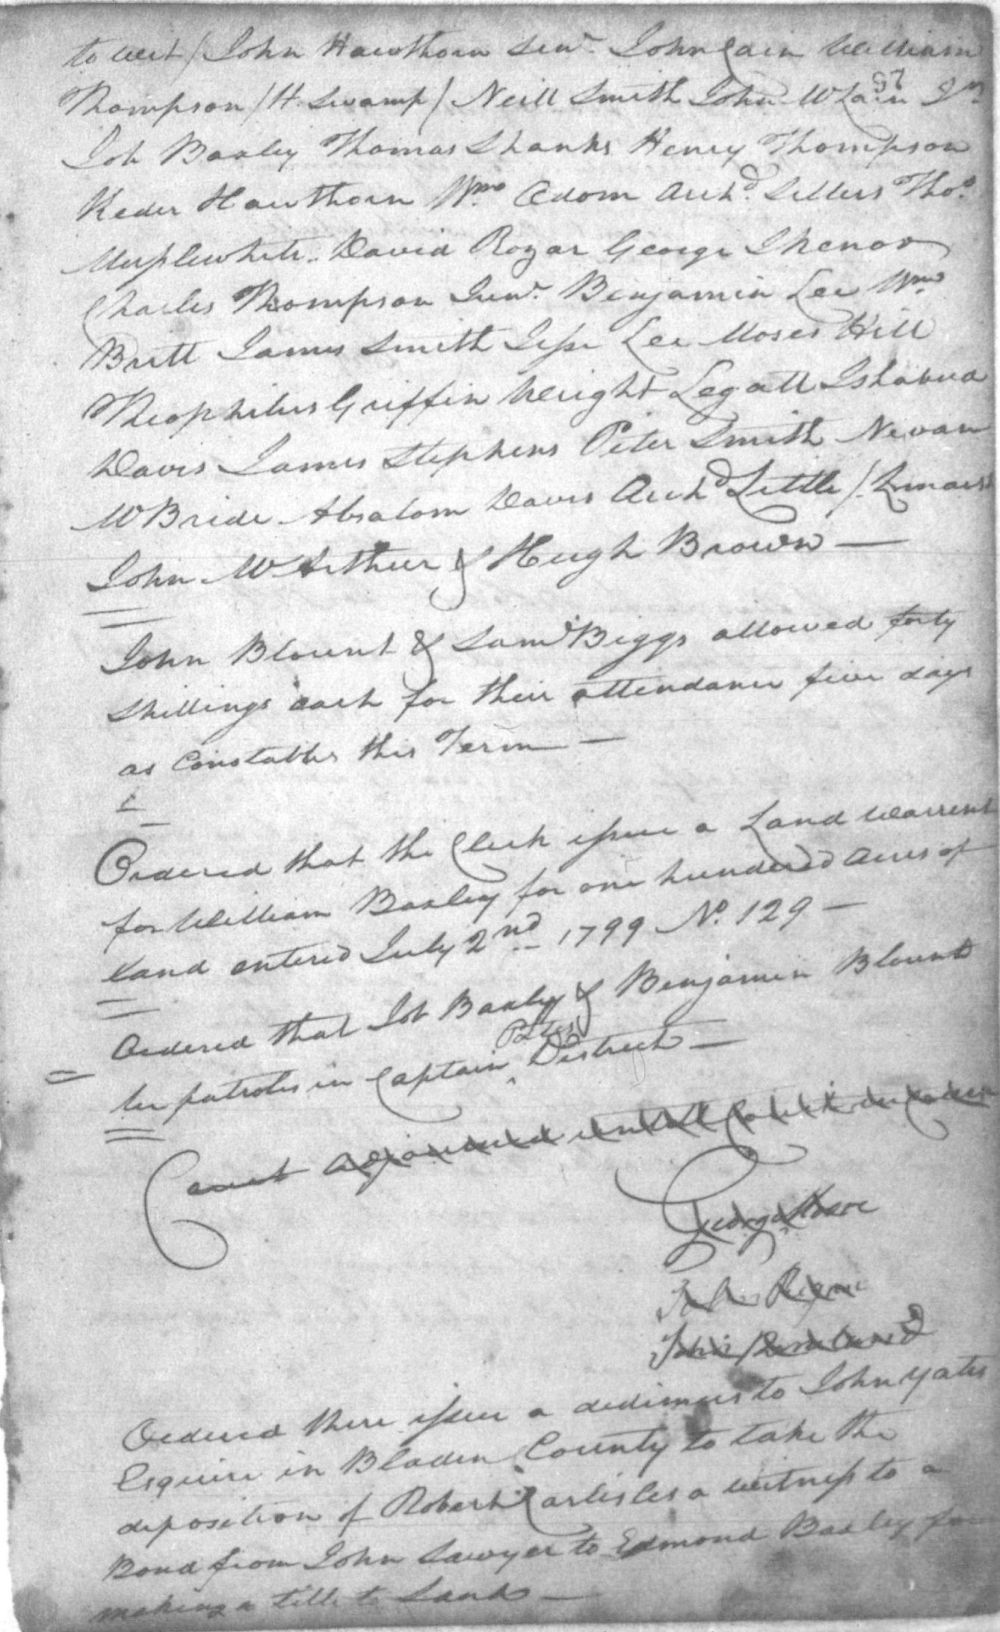 to wit / John Hawthorn Senr. John Cain William
87
Thompson / H. Swamp / Neill Smith John McLain Jr
Job Baxley Thomas Shanks Henry Thompson
Keder Hawthorn Wm. Odom Archd. Sellers Thos.
Musslewhite. David Rozar George
Charles Thompson Junr. Benjamin Lee Wm
Britt James Smith Jesse Lee Moses Hill
Theophilus Griffin Wright Legatt Ishabud
Davis James Stephens Peter Smith Nevan
McBride Absalom Davis Archd Little /
John McArthur & Hugh Brown —
John Blount & Saml Biggs allowed forty
shillings each for their attendance five days
as Constables this Term —
Ordered that the Clerk issue a Land Warrent
for William Baxley for one hundred acres of
Land entered July 2nd 1799 No. 129 —
Ordered that Job Baxley & Benjamin Blount
be patroles in Captain Pitts Districh —
Court adjourned untill Court in Course
George
John Regan
John Rowland
Ordered there issue a dedimus to John Yates
Esquire in Bladen County to take the
deposition of Robert Carlisles a witness to a
Bond from John Sawyer to Edmond Baxley for
making a title to Land —